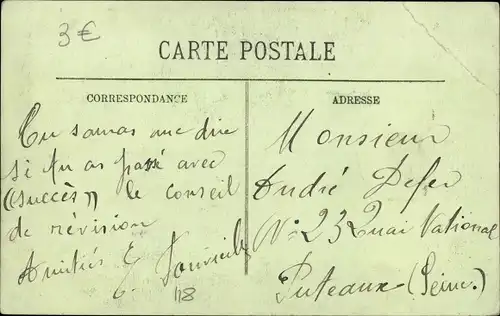 3€
CARTE POSTALE
CORRESPONDANCE
ADRESSE
Tu sauras me dire
si tu as passé avec
"succès" le conseil
de révision
Amitiés
118
Monsieur
André
No 23 Quai National
Puteaux (Seine.)